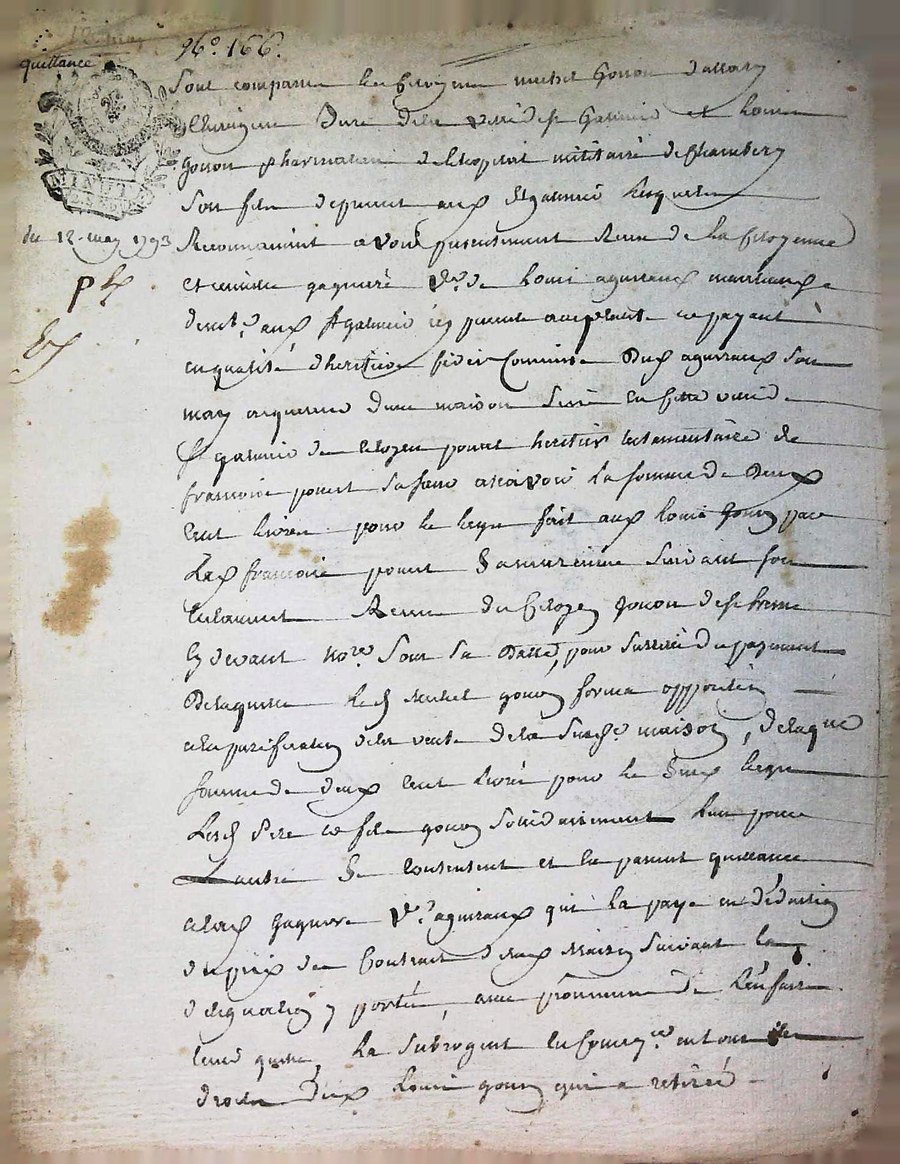 quittance
N°. 166.
MINUTE
du 12 may 1793
Sont comparu les Citoyens michel Gonon
Chirurgien Juré de la ville de St Galmier et Louis
gonon pharmatien de l'hopital militaire de Chambery
son fils de present aux St galmier lesquels
Reconnaissent avoir presentement Receu de la Citoyenne
gagniere Ve. de Louis aguiraux marchande
demt. aux St galmier icy presente acceptante ce payant
en qualité d'heritiere fidei Commise dud aguiraux son
mary acquereur d'une maison size en cette ville de
St galmier du Citoyen pouret heritier testamentaire de
francoise pouret sa sœur ascavoir la somme de Deux
Cent livres pour le legs fait aux Louis gonon par
Lad francoise pouret suivant son
testament Receu du Citoyen gonon
devant nore. sous sa Datte, pour sureté du payement
Delaquelle led michel gonon forma opposition
a la purification de la vente de la susde. maison, de laque
somme de deux cent livres pour le susd legs
Lesd pere et fils gonon solidairement l'un pour
L'autre se contentent et en passent quittance
a lad gagniere Ve. aguiraux qui la paye en déduction
du prix du Contrat de lad Maison suivant la
délégation y portée, avec promesse de l'en faire
tenir quitte, La subrogent en tous les
droits dud Louis gonon qui a retiré